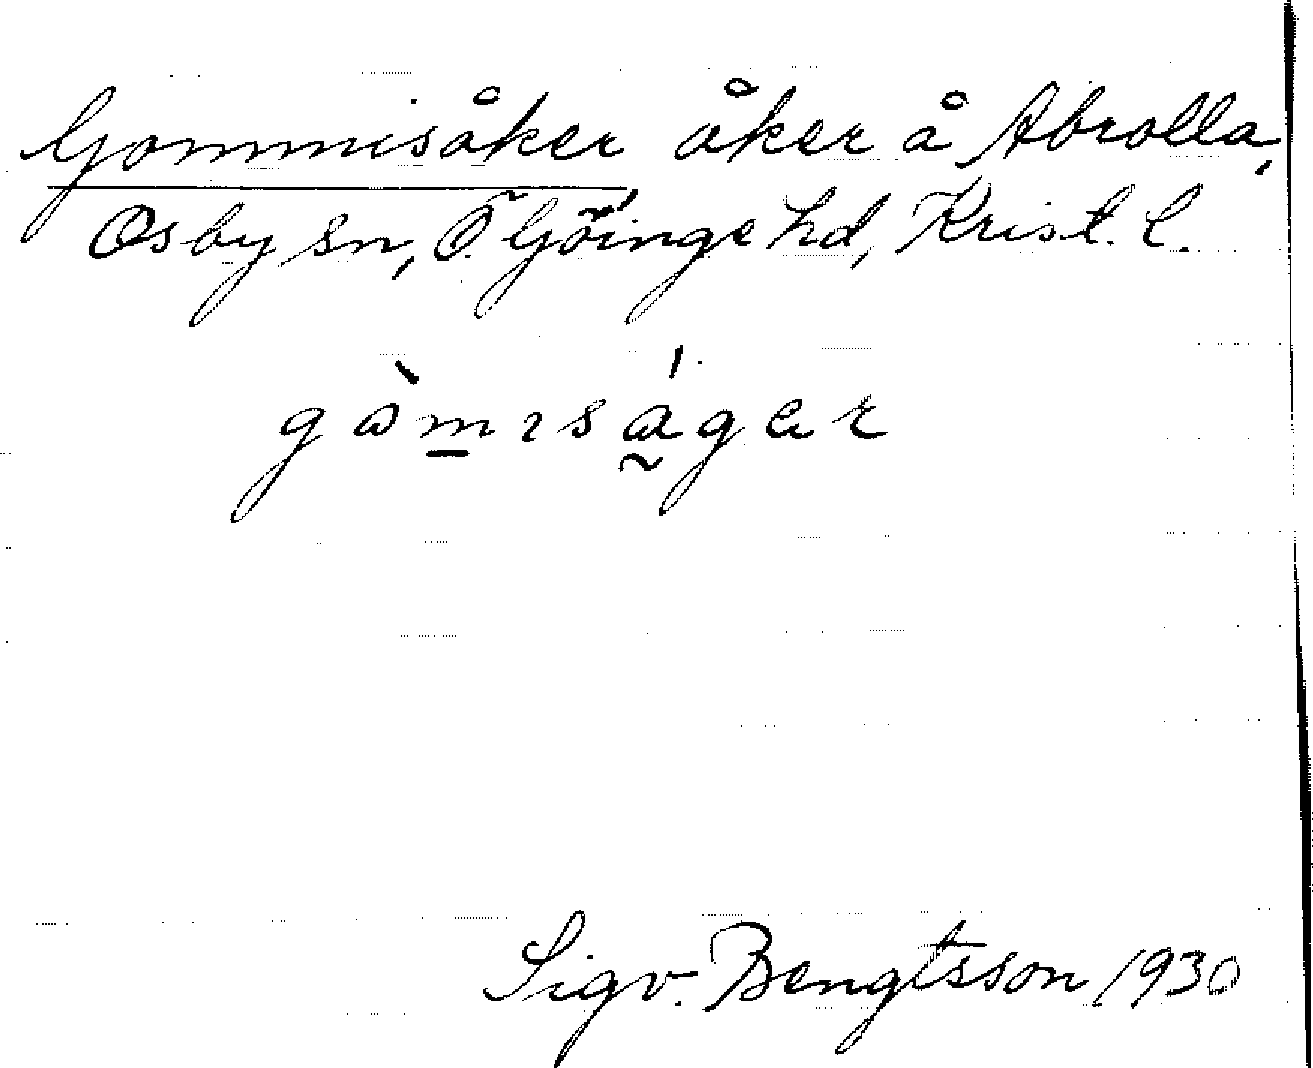 Gommisåker åker å Abrolla,
Osby sn, Ö. Göinge hd, Krist. l.
gòmɪságær
Sigv. Bengtsson 1930